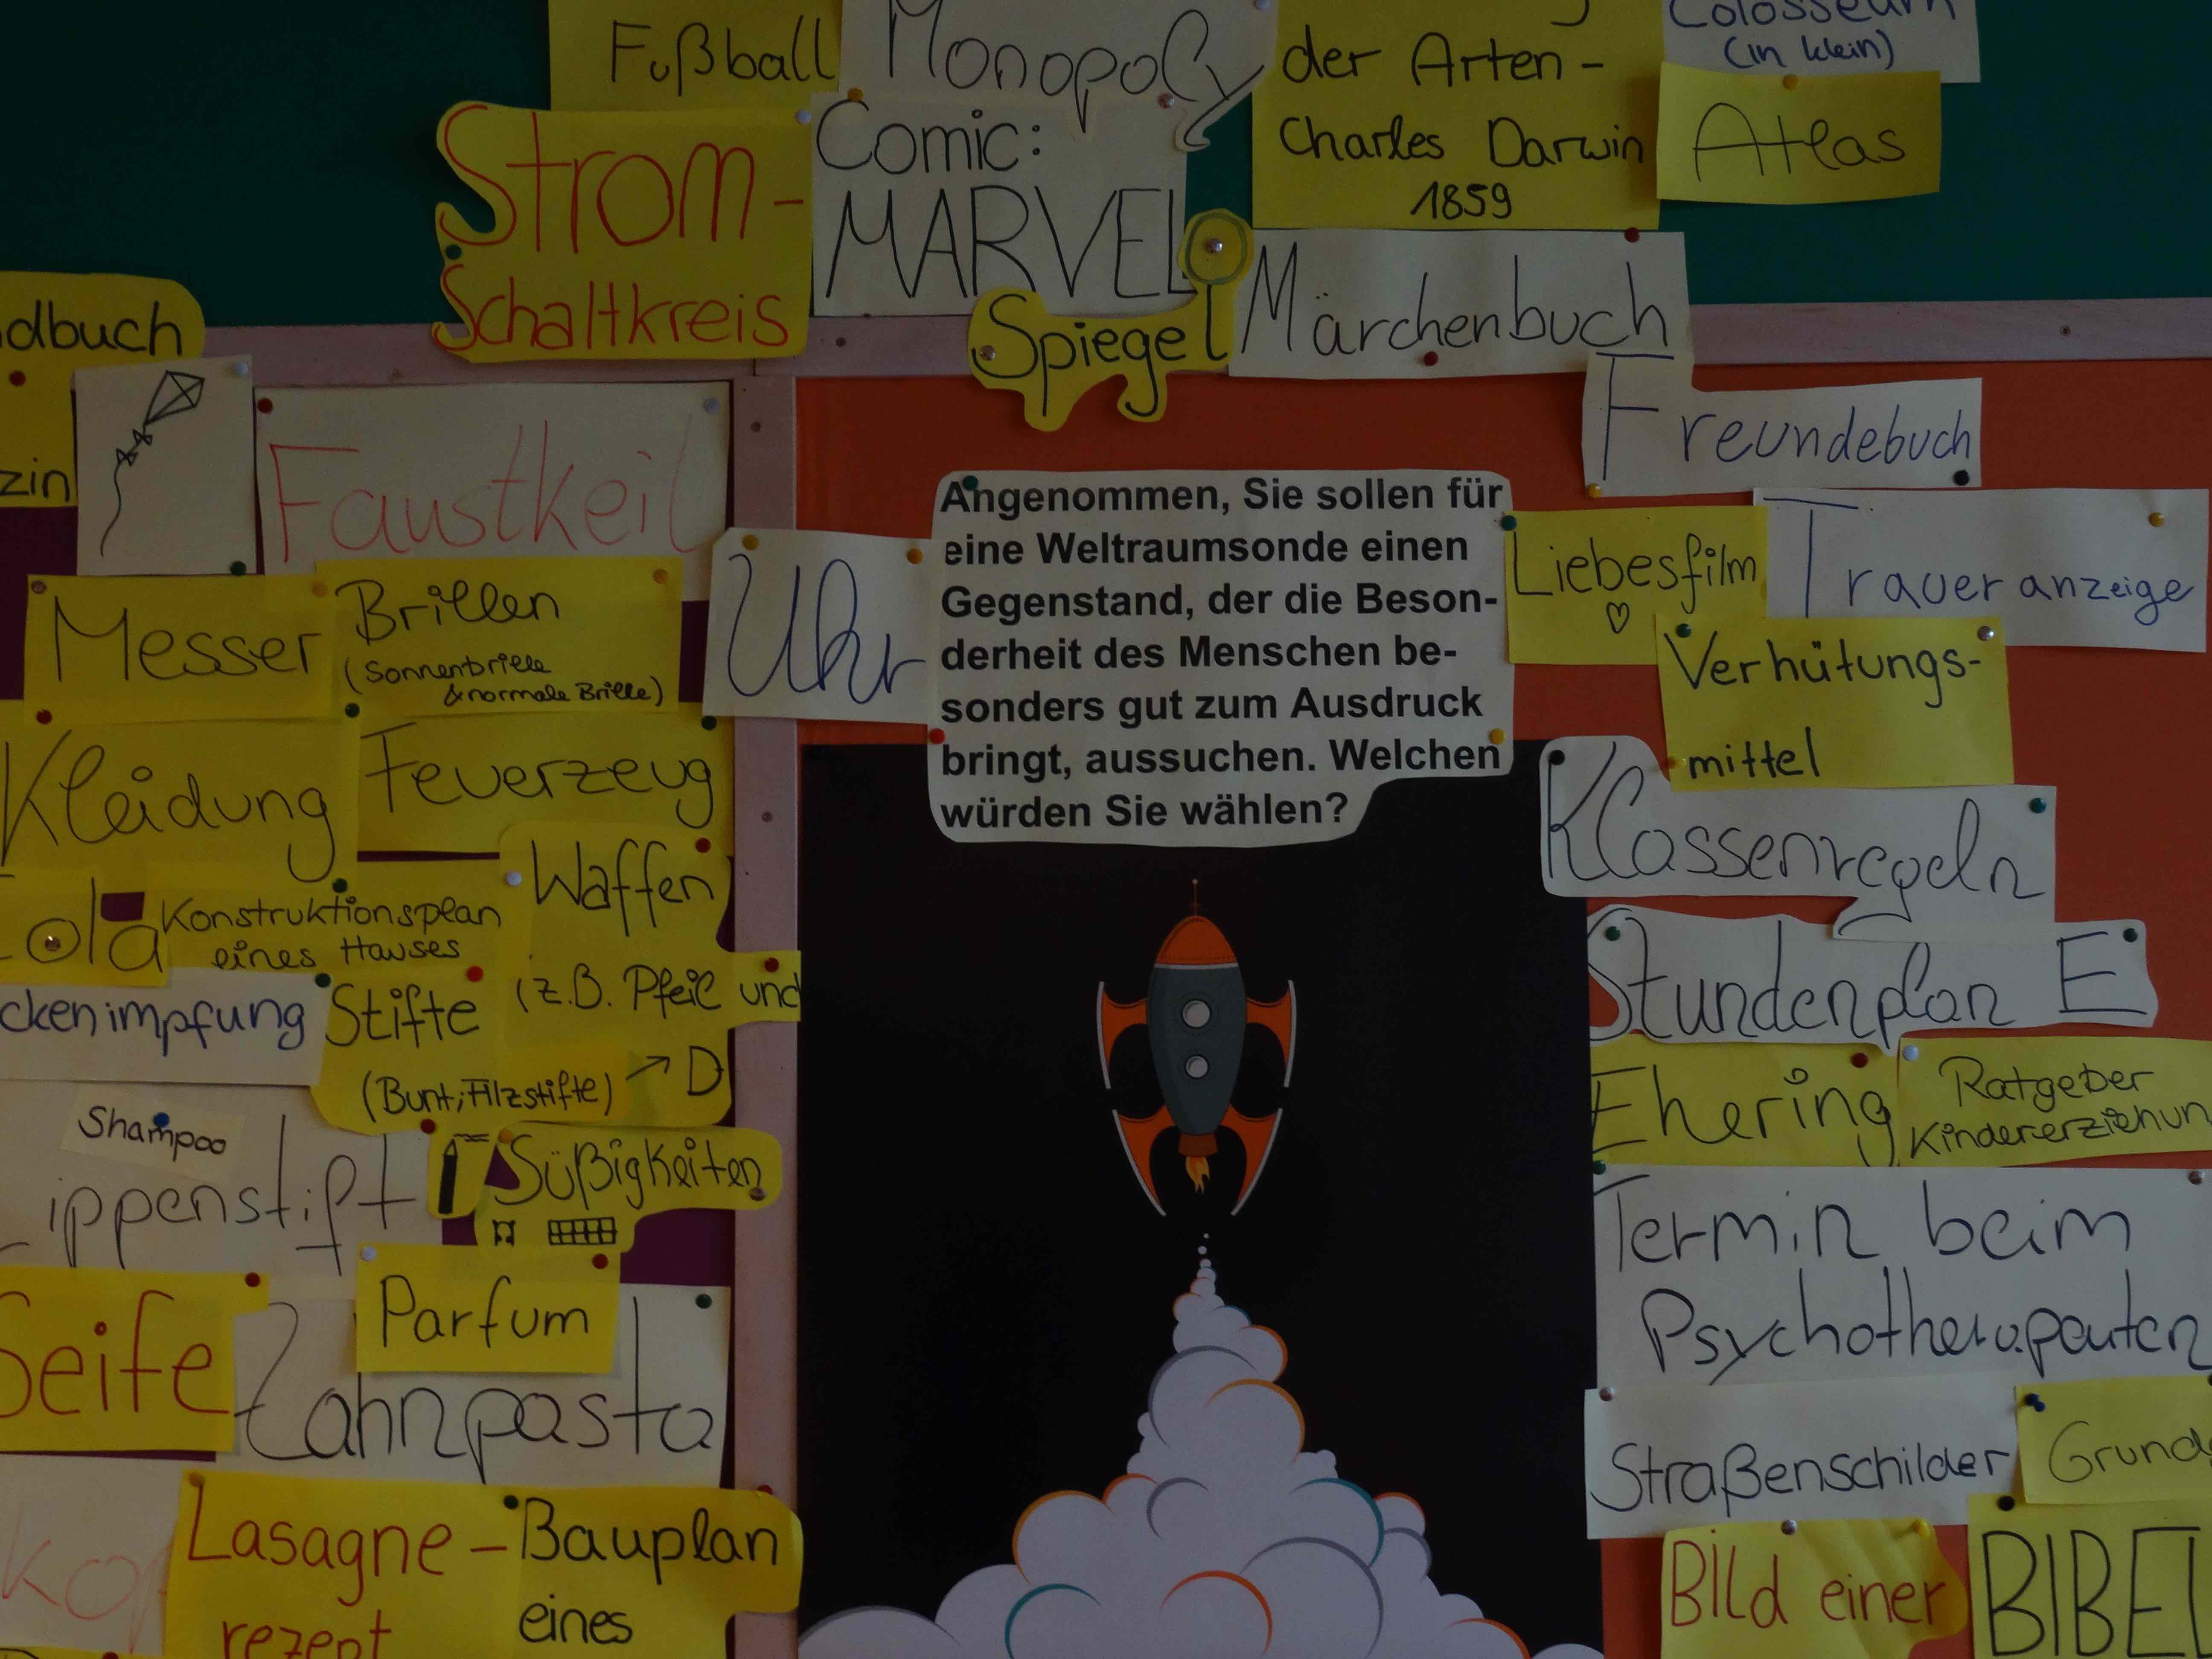 Fußball
Monopoly
der Arten -
Charles Darwin
1859
Colosseum
(in klein)
Atlas
Strom-
Schaltkreis
Comic:
MARVEL
Spiegel
Märchenbuch
Freundebuch
dbuch
zin
Faustkeil
Messer
Brillen
(Sonnenbrille
& normale Brille)
Uhr
Angenommen, Sie sollen für
eine Weltraumsonde einen
Gegenstand, der die Beson-
derheit des Menschen be-
sonders gut zum Ausdruck
bringt, aussuchen. Welchen
würden Sie wählen?
Liebesfilm
♡
Traueranzeige
Verhütungs-
mittel
Kleidung
Feuerzeug
Klassenregeln
Cola
Konstruktionsplan
eines Hauses
Waffen
(z.B. Pfeil und
Stundenplan E
ckenimpfung
Stifte
(Bunt, Filzstifte)
Ehering
Ratgeber
Kindererziehun
Shampoo
Lippenstift
Süßigkeiten
Termin beim
Psychotherapeuten
Seife
Parfum
Zahnpasta
Straßenschilder
Grund
Lasagne-
rezept
Bauplan
eines
Bild einer
BIBEL